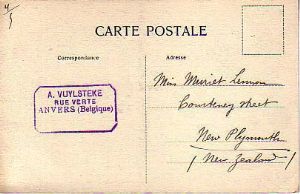 4/5
CARTE POSTALE
Correspondance
Adresse
A. VUYLSTEKE
RUE VERTE
ANVERS (Belgique)
Miss Merriet Lennon
Courteney street
New Plymouth
(New Zealand)